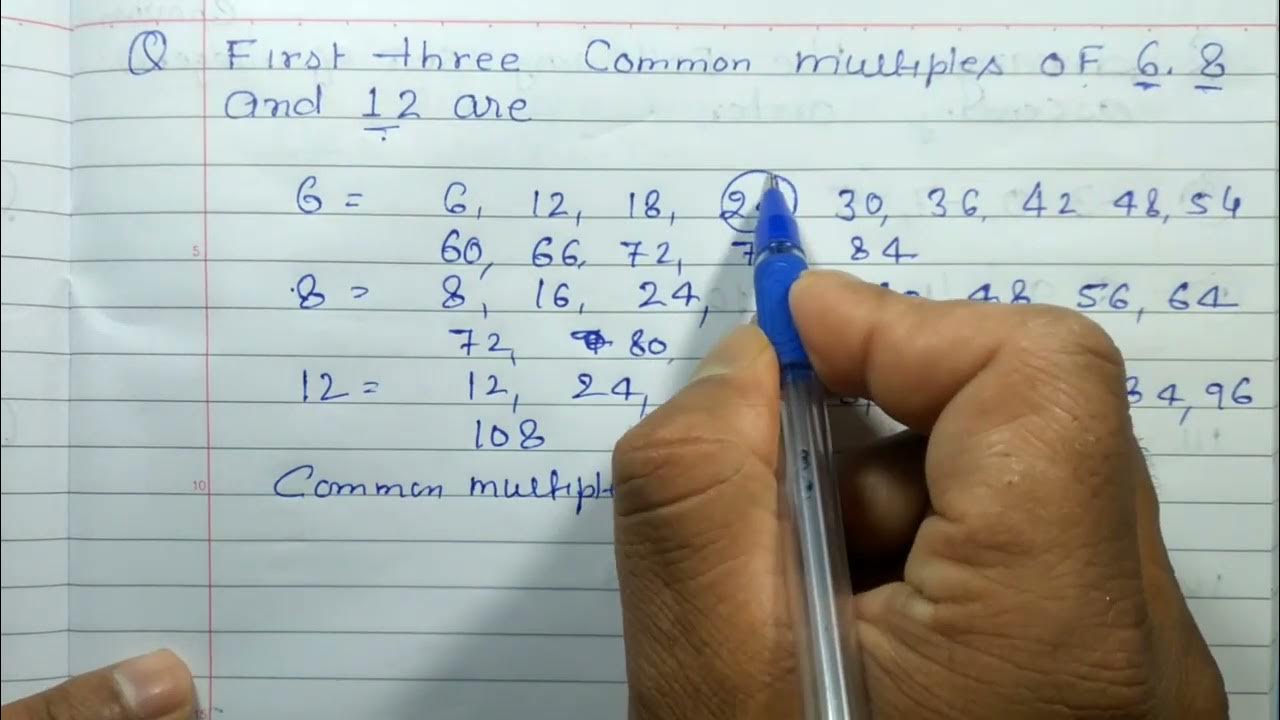 Q First three Common multiples OF 6, 8
and 12 are
6 = 6, 12, 18, 30, 36, 42 48, 54
60, 66, 72, 84
8 = 8, 16, 24, 48 56, 64
72, 80,
12 = 12, 24, 96
108
Common